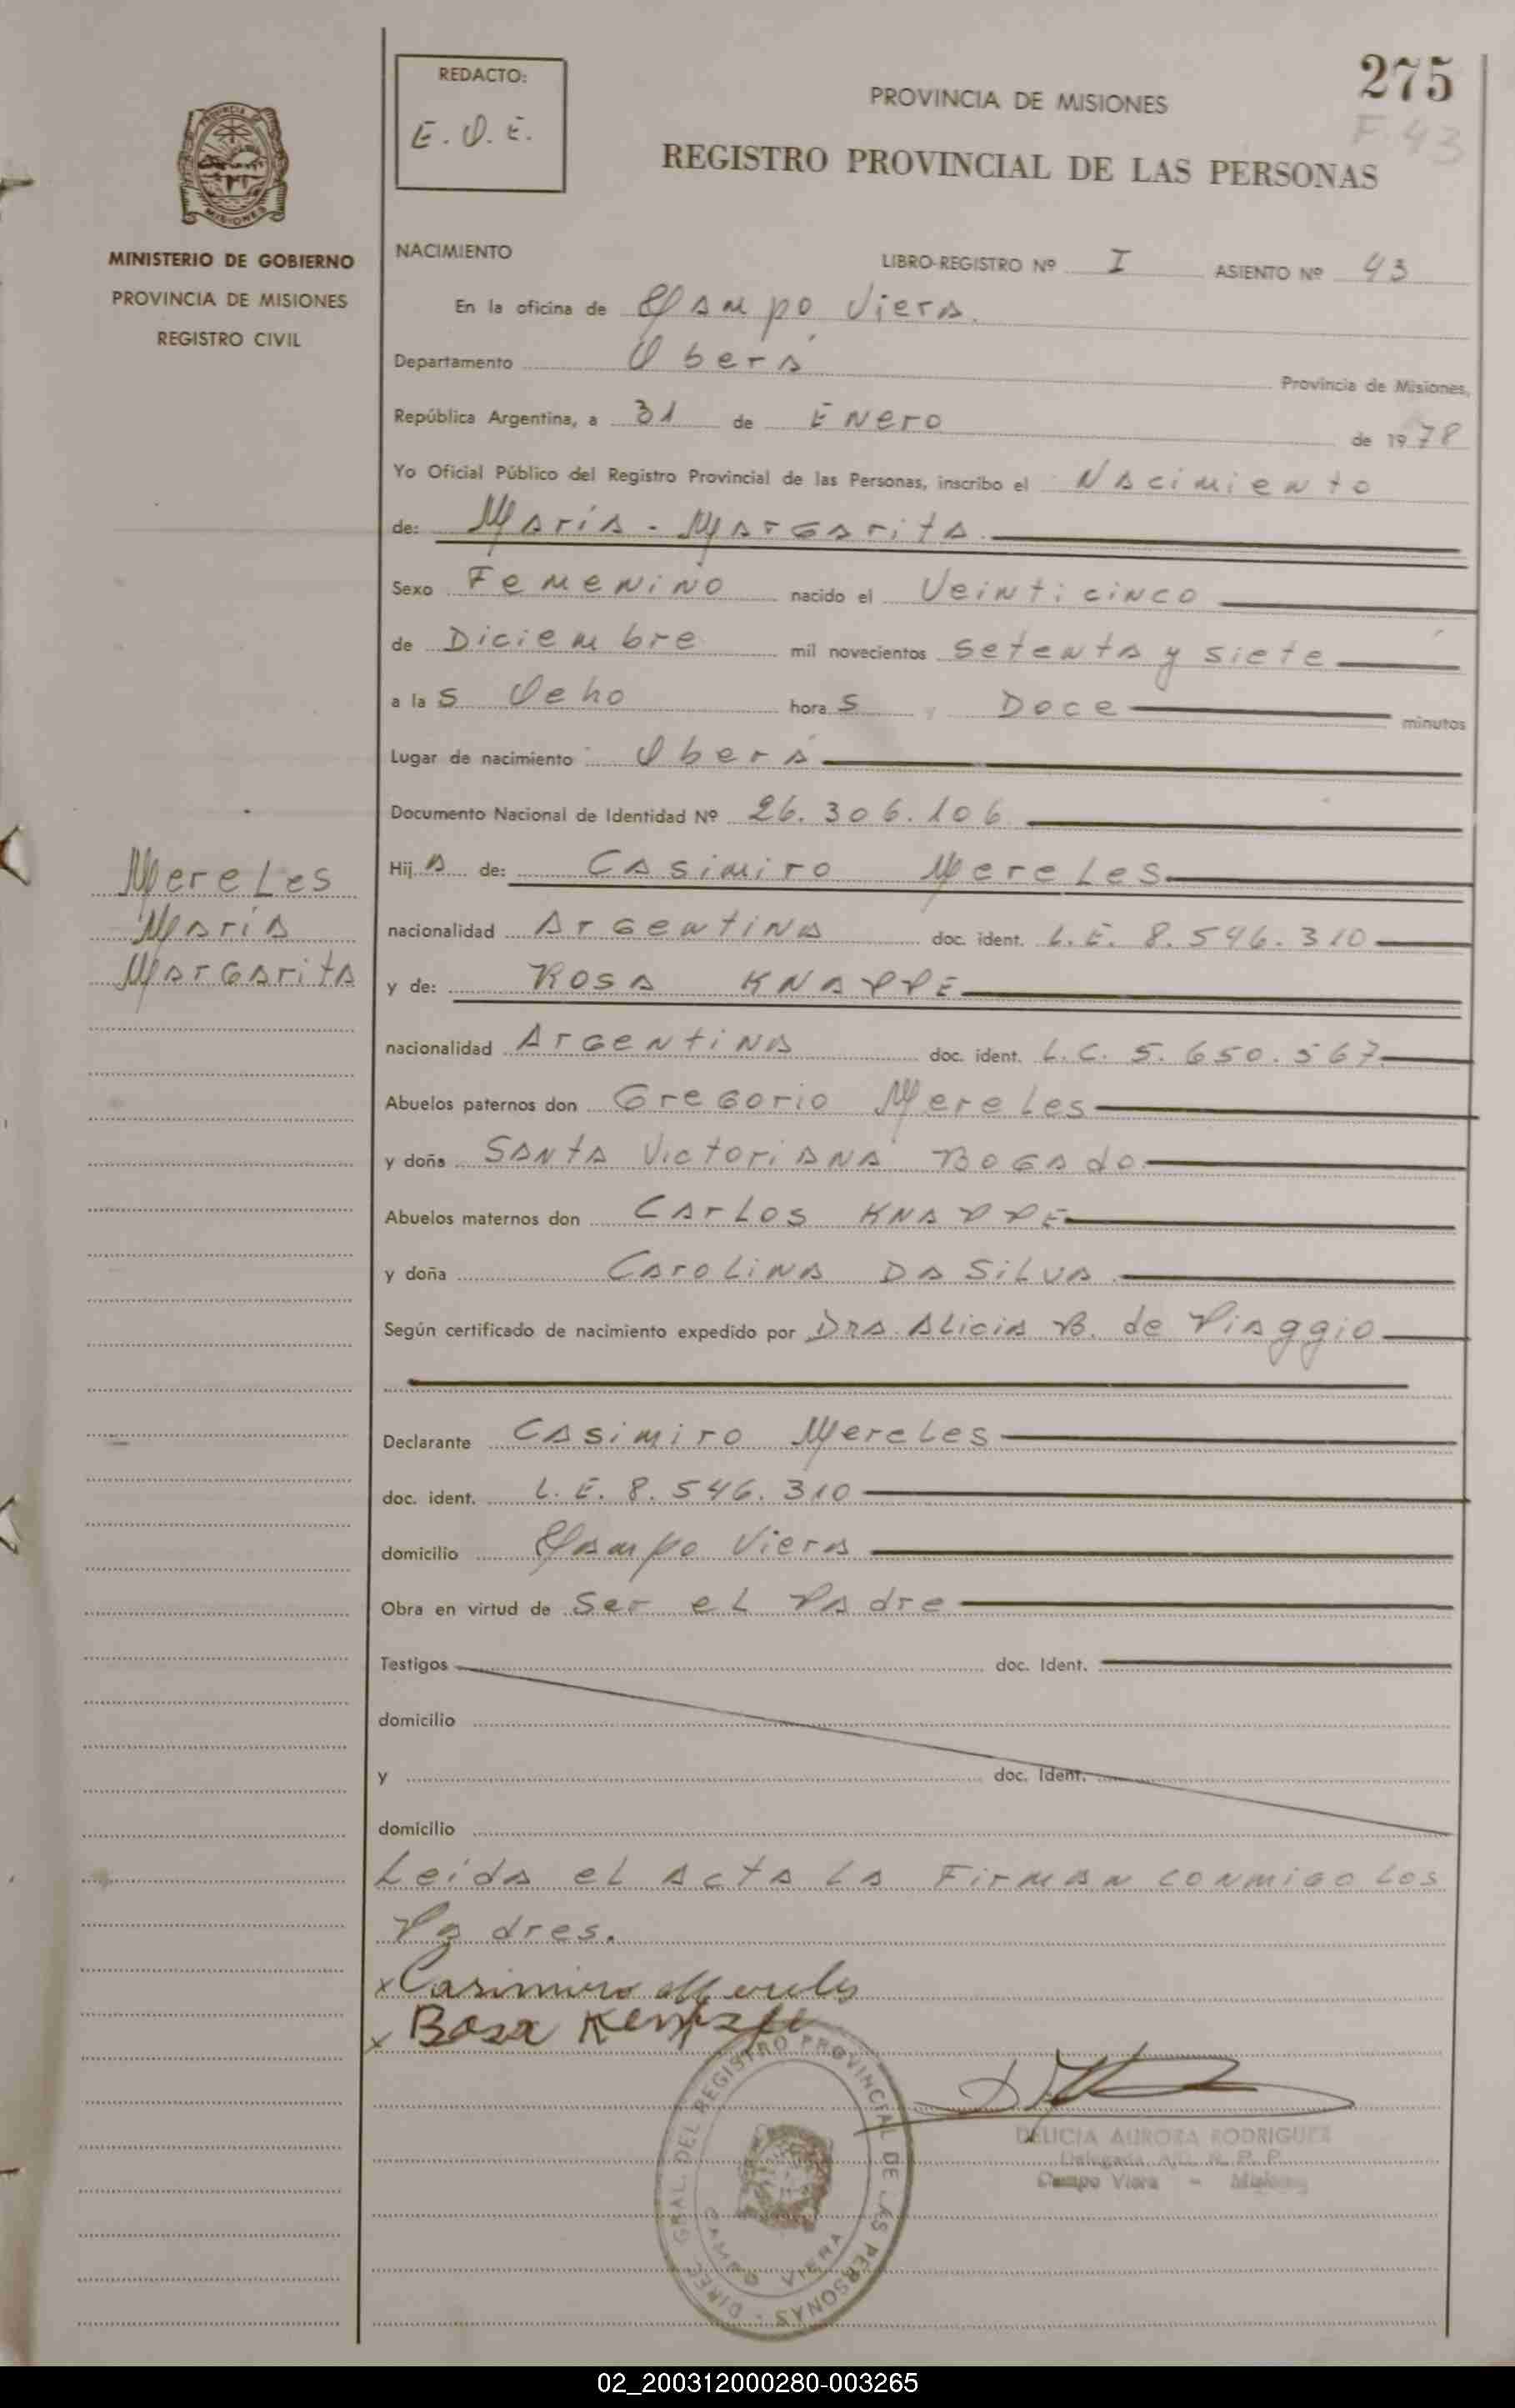 275
F. 43
REDACTO:
E. O. E.
PROVINCIA DE MISIONES
REGISTRO PROVINCIAL DE LAS PERSONAS
MISIONES
MINISTERIO DE GOBIERNO
PROVINCIA DE MISIONES
REGISTRO CIVIL
NACIMIENTO
LIBRO-REGISTRO Nº I ASIENTO Nº 43
En la oficina de Campo Viera.
Departamento Oberá Provincia de Misiones,
República Argentina, a 31 de Enero de 1978
Yo Oficial Público del Registro Provincial de las Personas, inscribo el Nacimiento
de: María - Margarita.
Sexo Femenino nacido el Veinticinco
de Diciembre mil novecientos setenta y siete
a las Ocho horas y Doce minutos
Lugar de nacimiento Oberá
Documento Nacional de Identidad Nº 26.306.106
Hija de: Casimiro Mereles
nacionalidad Argentina doc. ident. L.E. 8.546.310
y de: Rosa KNAPPE
nacionalidad Argentina doc. ident. L.C. 5.650.567
Abuelos paternos don Gregorio Mereles
y doña Santa Victoriana Bogado
Abuelos maternos don Carlos KNAPPE
y doña Carolina Da Silva
Según certificado de nacimiento expedido por Dra Alicia B. de Piaggio
Declarante Casimiro Mereles
doc. ident. L.E. 8.546.310
domicilio Campo Viera
Obra en virtud de Ser el Padre
Testigos doc. Ident.
domicilio
y doc. Ident.
domicilio
Leida el acta la Firman conmigo los
Padres.
x Casimiro Mereles
x Rosa
Mereles
María
Margarita
DIREC. GRAL. DEL REGISTRO PROVINCIAL DE LAS PERSONAS
CAMPO VIERA
DELICIA AURORA RODRIGUEZ
Delegada R. P. P.
Campo Viera - Misiones
02_200312000280-003265